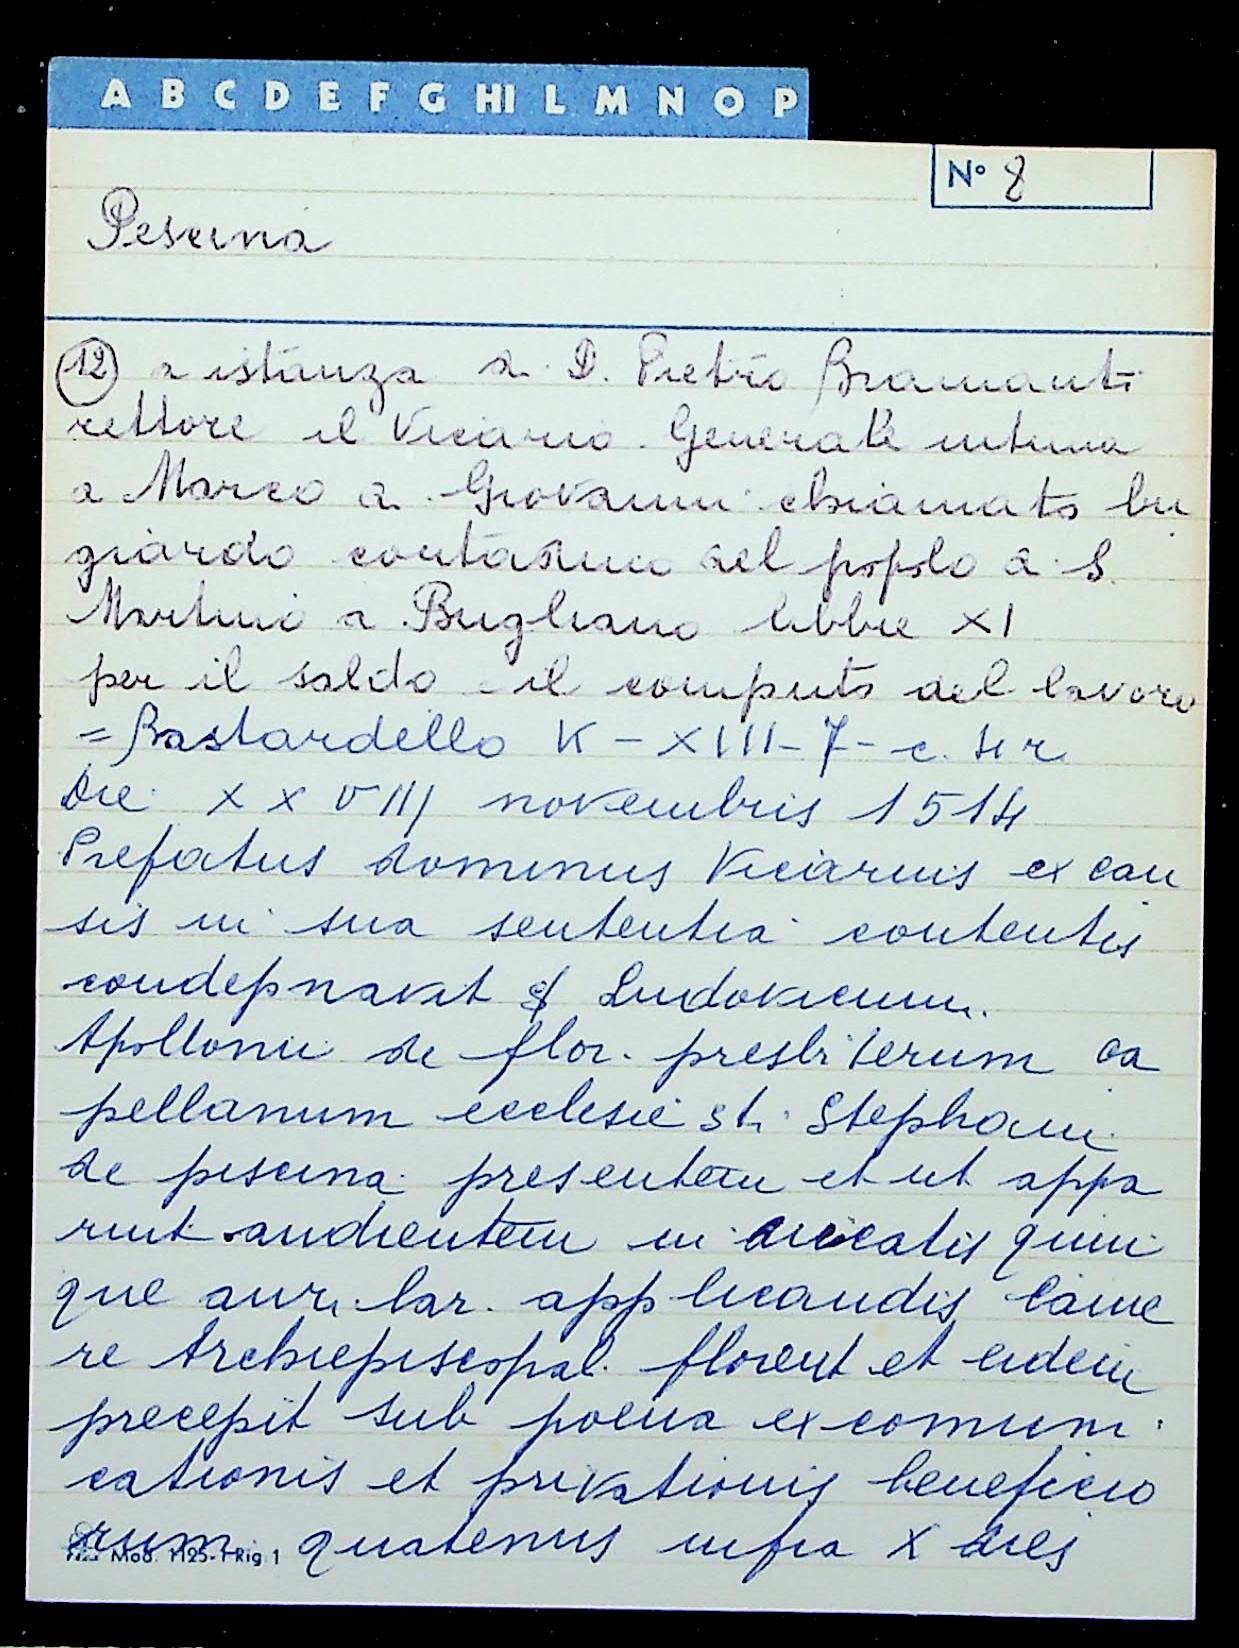 A B C D E F G HI L M N O P
N° 8
Pescina
12 a istanza di D. Pietro Bramanti
rettore il Vicario Generale intima
a Marco di Giovanni chiamato bu
giardo contadino del popolo di S.
Martino a Bugliano libbre XI
per il saldo il computo del lavoro
= Bastardello K - XIII - 7 - c. 4 r
Die XXVIII novembris 1514
Prefatus dominus Vicarius ex cau
sis in sua sententia contentis
condepnavit Ludovicum
Apollonii de flor. presbiterum ca
pellanum ecclesie sti Stephani
de piscina presentem et ut appa
ruit audientem in ducatis quin
que aur. lar. applicandis Came
re Archiepiscopal. florent et eidem
precepit sub poena excomuni
cationis et privationis beneficio
rum quatenus infra X dies
Mod. 1125-1 Rig 1